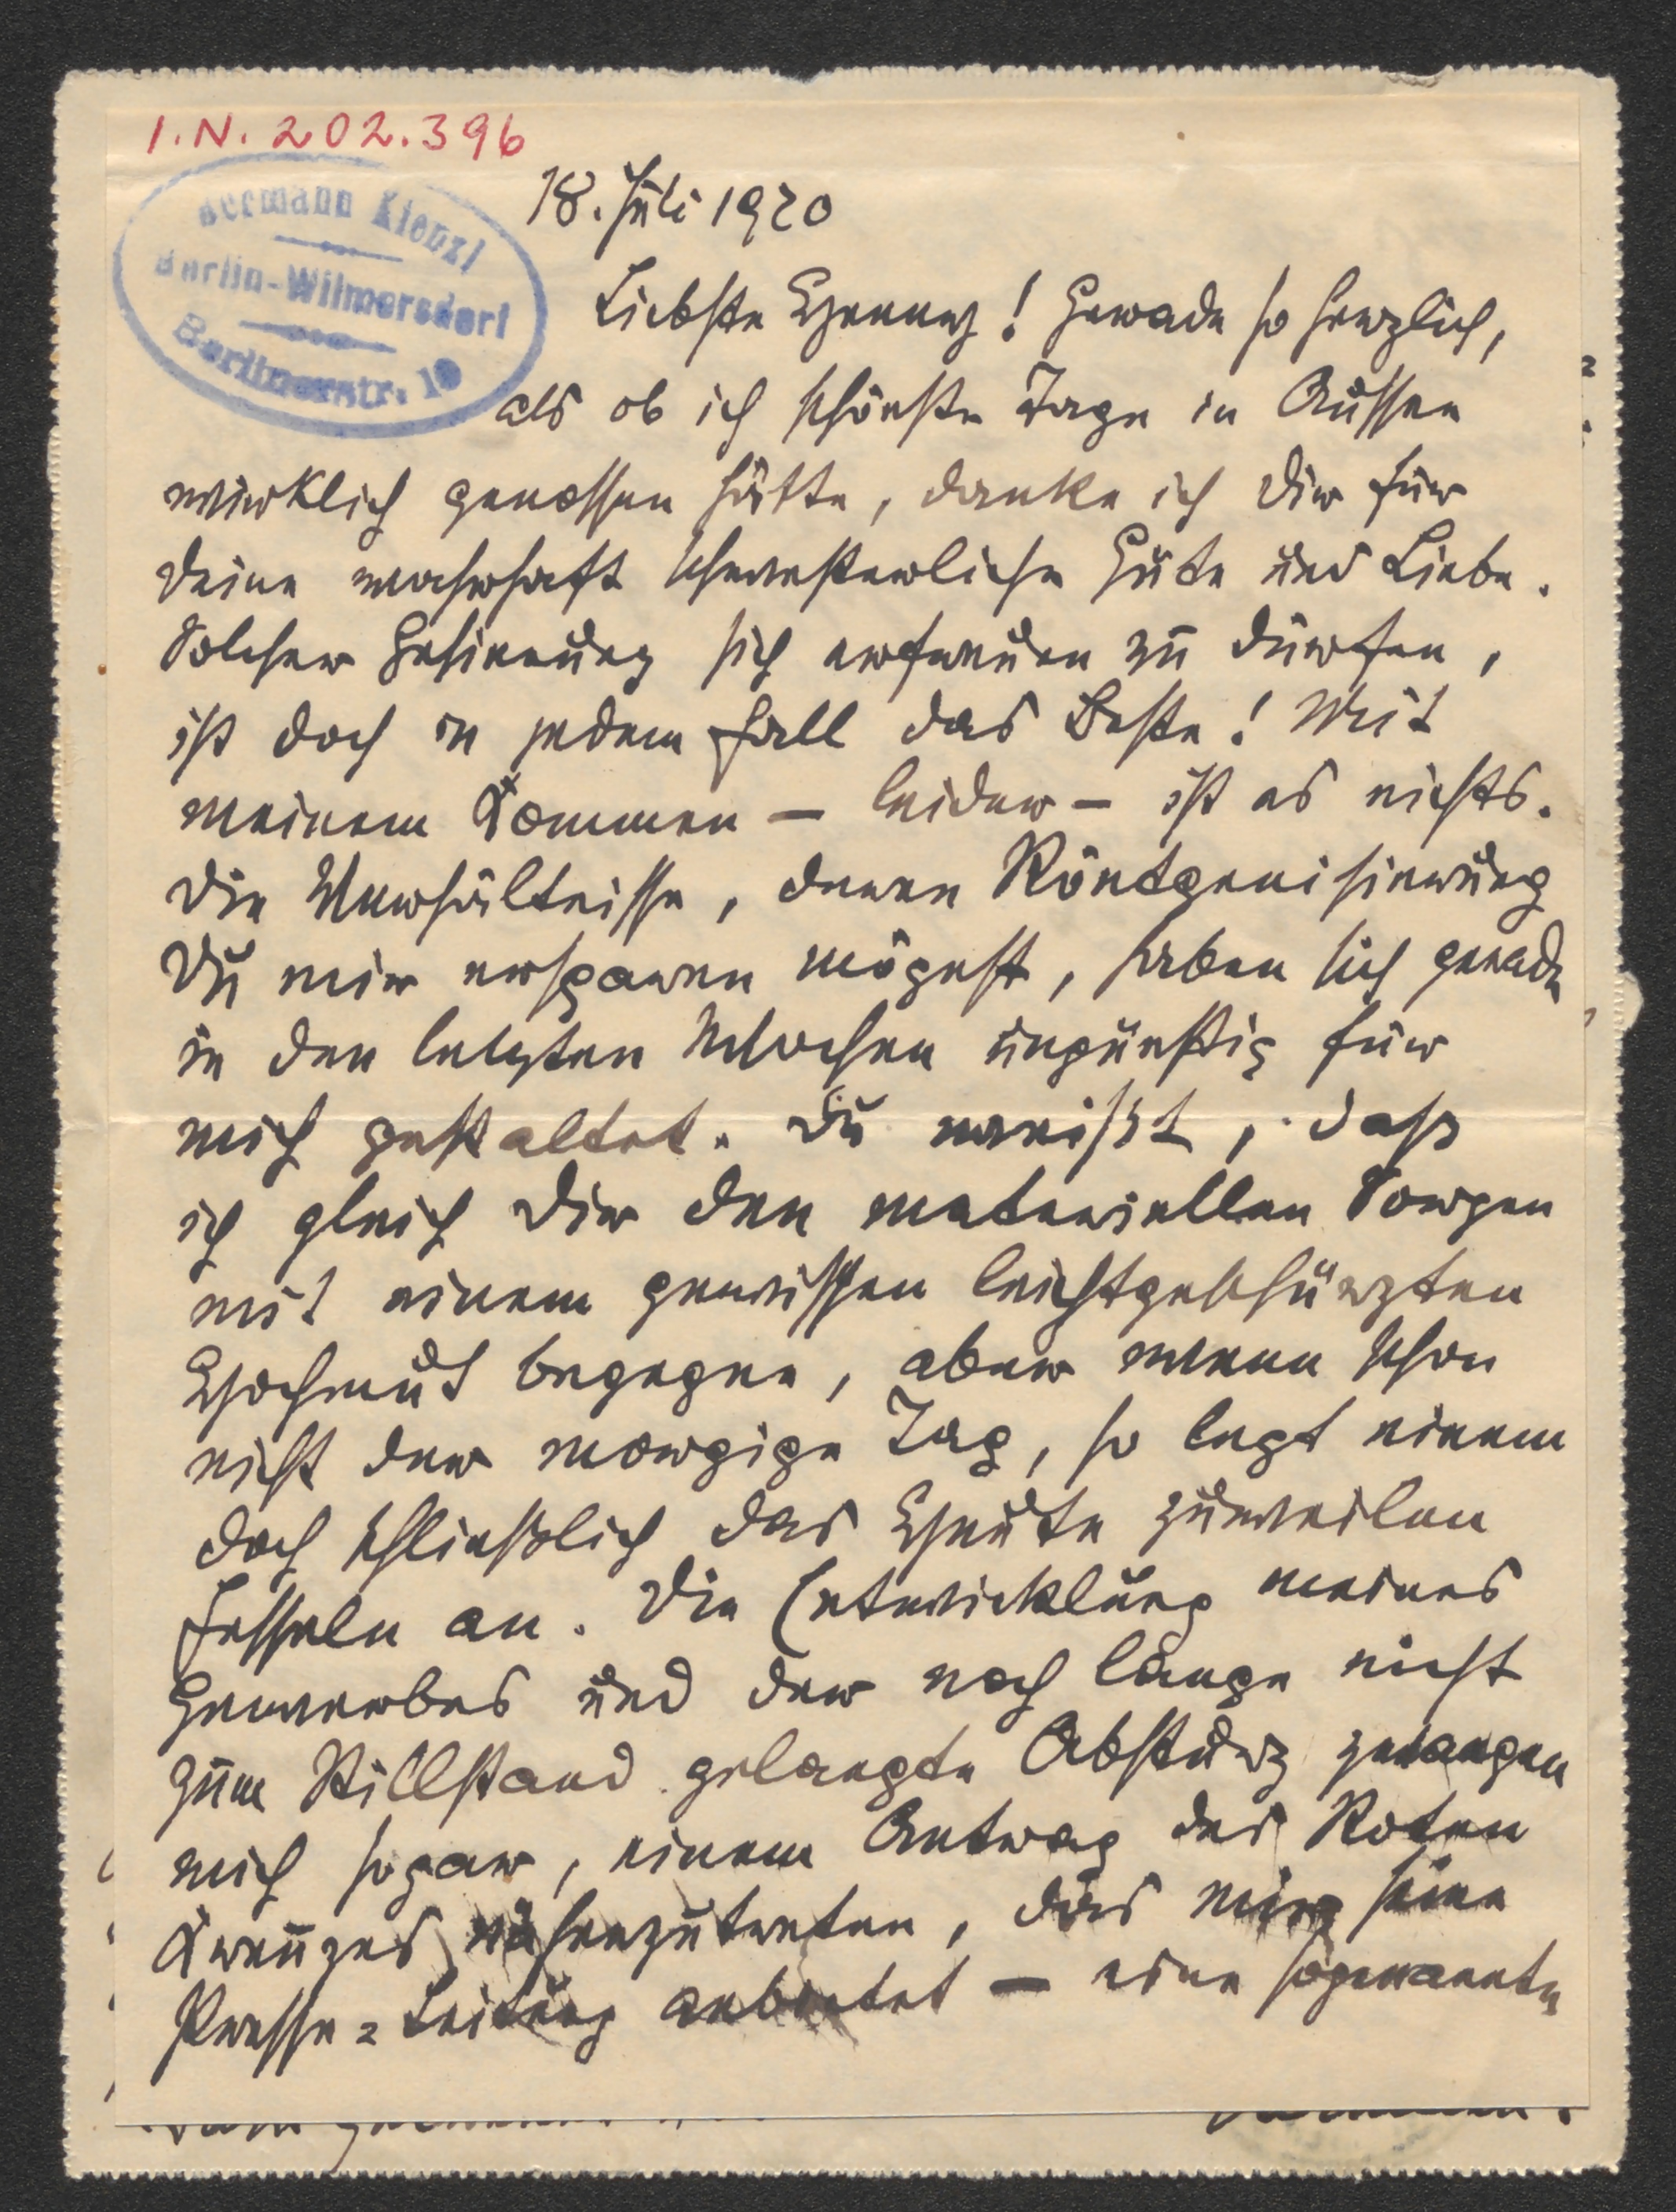 I.N. 202.396
Hermann Kienzl
Berlin-Wilmersdorf
Berlinerstr. 10
18. Juli 1920
Liebste Henny! Gerade so herzlich,
als ob ich schönste Tage in Aussee
wirklich genossen hätte, danke ich Dir für
Deine wahrhaft schwesterliche Güte und Liebe.
Solcher Gesinnung sich erfreuen zu dürfen,
ist doch in jedem Fall das Beste! Mit
meinem Kommen – leider – ist es nichts.
Die Verhältnisse, deren Röntgenisierung
Du mir ersparen mögest, haben sich gerade
in den letzten Wochen ungünstig für
mich gestaltet. Du weißt, dass
ich gleich Dir den materiellen Sorgen
mit einem gewissen leichtgeschürzten
Hochmut begegne, aber wenn schon
nicht der morgige Tag, so legt einem
doch schließlich das Heute zuweilen
Fesseln an. Die Entwicklung meines
Gewerbes und der noch lange nicht
zum Stillstand gelangte Absturz zwangen
mich sogar, einem Antrag des Roten
Kreuzes näherzutreten, das mir seine
Presse-Leitung anbietet – eine sogenannte